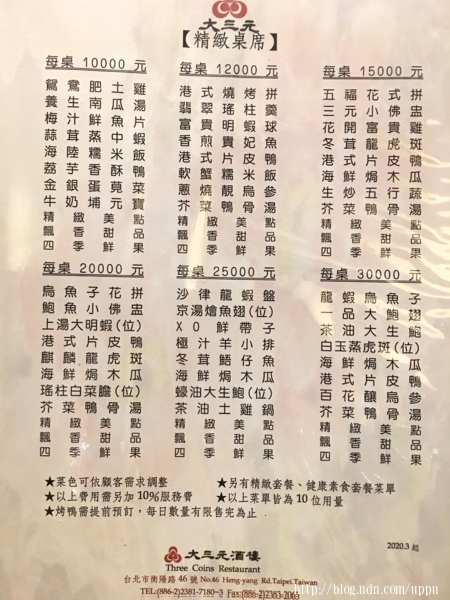 大三元
【精緻桌席】
每桌 10000 元
鴛鴦肥土雞
養生南瓜湯
梅汁鮮魚片
蒜茸蒸中蝦
海陸糯米飯
荔芋香酥鴨
金銀蛋莧菜
牛奶埔元寶
精緻美點
飄香甜品
四季鮮果
每桌 12000 元
港式燒烤拼
翡翠瑤柱羹
富貴明蝦球
香煎貴妃魚
港式片皮鴨
軟蟹糯米飯
蔥燒靚烏參
芥菜鴨骨湯
精緻美點
飄香甜品
四季鮮果
每桌 15000 元
五福花式拼
三元小佛盅
花開富貴雞
冬茸龍虎斑
港式片皮鴨
海鮮焗木瓜
生炒五行蔬
芥菜鴨骨湯
精緻美點
飄香甜品
四季鮮果
每桌 20000 元
烏魚子花拼
鮑魚小佛盅
上湯大明蝦(位)
港式片皮鴨
麒麟龍虎斑
海鮮焗木瓜
瑤柱白菜膽(位)
芥菜鴨骨湯
精緻美點
飄香甜品
四季鮮果
每桌 25000 元
沙律龍蝦盤
京湯燴魚翅(位)
XO鮮帶子
極汁羊小排
冬茸鮨仔魚
海鮮焗木瓜
蠔油大生鮑(位)
茶油土雞鍋
精緻美點
飄香甜品
四季鮮果
每桌 30000 元
龍蝦烏魚子
一品小佛盅
茶油大生鮑
白玉蒸虎斑(位)
港式片皮鴨
海鮮焗木瓜
百花釀烏參
芥菜鴨骨湯
精緻美點
飄香甜品
四季鮮果
★菜色可依顧客需求調整
★以上費用需另加 10%服務費
★烤鴨需提前預訂，每日數量有限售完為止
★另有精緻套餐、健康素食套餐菜單
★以上菜單皆為 10 位用量
2020.3 起
大三元酒樓
Three Coins Restaurant
台北市衡陽路 46 號 No.46 Heng-yang Rd.Taipei.Taiwan
TEL:(886-2)2381-7180~3 Fax:(886-2)2383-2063
http://blog.udn.com/uppu